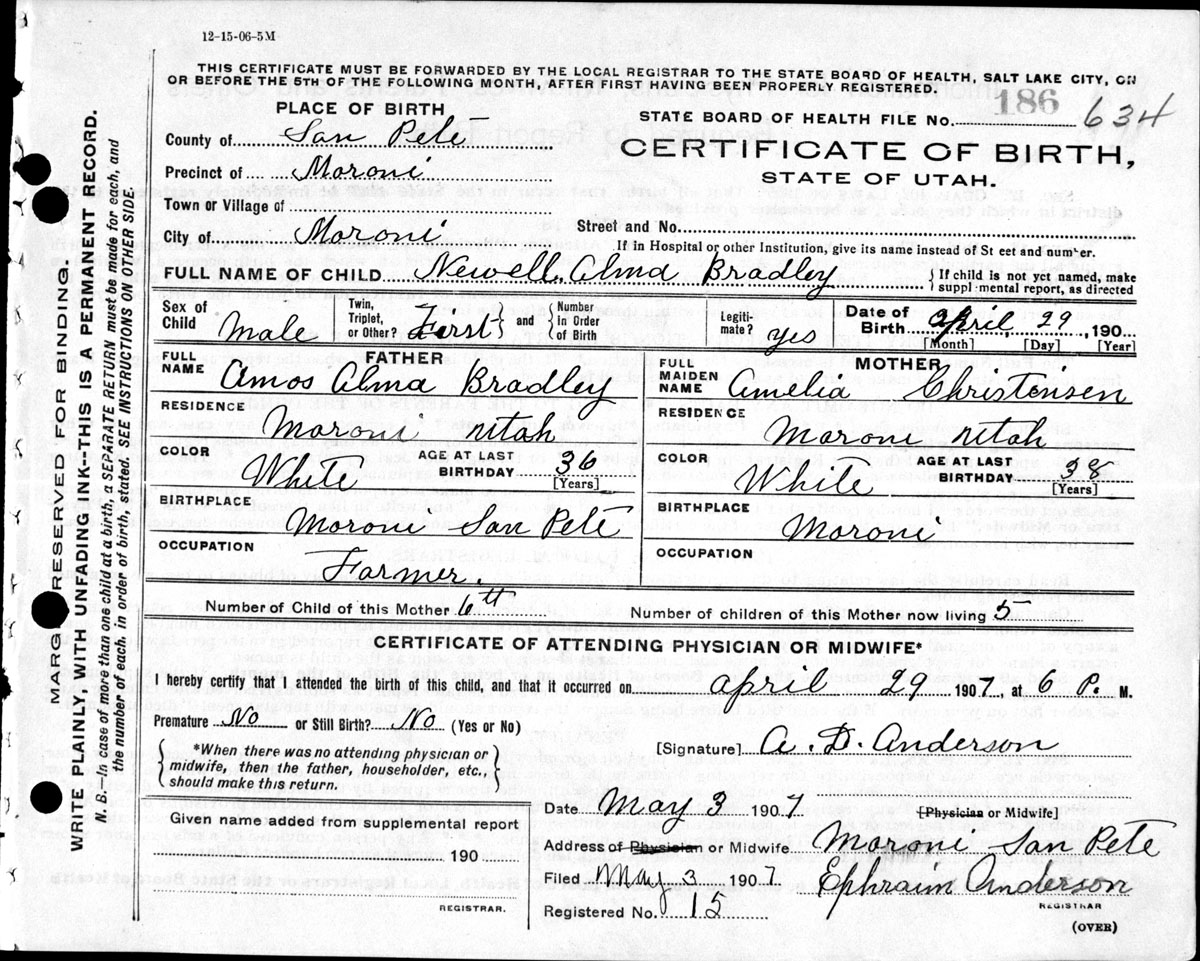 12-15-06-5M
THIS CERTIFICATE MUST BE FORWARDED BY THE LOCAL REGISTRAR TO THE STATE BOARD OF HEALTH, SALT LAKE CITY, ON
OR BEFORE THE 5TH OF THE FOLLOWING MONTH, AFTER FIRST HAVING BEEN PROPERLY REGISTERED.
PLACE OF BIRTH
186
STATE BOARD OF HEALTH FILE NO. 634
County of San Pete
CERTIFICATE OF BIRTH,
STATE OF UTAH.
Precinct of Moroni
Town or Village of
Street and No.
City of Moroni
If in Hospital or other Institution, give its name instead of St eet and number.
FULL NAME OF CHILD Newell Alma Bradley
{ If child is not yet named, make
suppl mental report, as directed
Sex of Child Male
Twin, Triplet, or Other? First } and { Number in Order of Birth
Legiti-mate? yes
Date of Birth April 29 190
[Month] [Day] [Year]
FULL NAME FATHER Amos Alma Bradley
FULL MAIDEN NAME MOTHER Amelia Christensen
RESIDENCE Moroni utah
RESIDENCE Moroni utah
COLOR White AGE AT LAST BIRTHDAY 36 [Years]
COLOR White AGE AT LAST BIRTHDAY 38 [Years]
BIRTHPLACE Moroni San Pete
BIRTHPLACE Moroni
OCCUPATION Farmer.
OCCUPATION
Number of Child of this Mother 6th Number of children of this Mother now living 5
CERTIFICATE OF ATTENDING PHYSICIAN OR MIDWIFE*
I hereby certify that I attended the birth of this child, and that it occurred on April 29 1907, at 6 P. M.
Premature No or Still Birth? No (Yes or No)
{ *When there was no attending physician or
midwife, then the father, householder, etc.,
should make this return. }
[Signature] A. D. Anderson
Date May 3 1907 [Physician or Midwife]
Given name added from supplemental report
190
REGISTRAR.
Address of Physician or Midwife Moroni San Pete
Filed May 3 1907 Ephraim Anderson
REGISTRAR
Registered No. 15
(OVER)
MARG RESERVED FOR BINDING.
WRITE PLAINLY, WITH UNFADING INK--THIS IS A PERMANENT RECORD.
N. B.—In case of more than one child at a birth, a SEPARATE RETURN must be made for each, and
the number of each, in order of birth, stated. SEE INSTRUCTIONS ON OTHER SIDE.